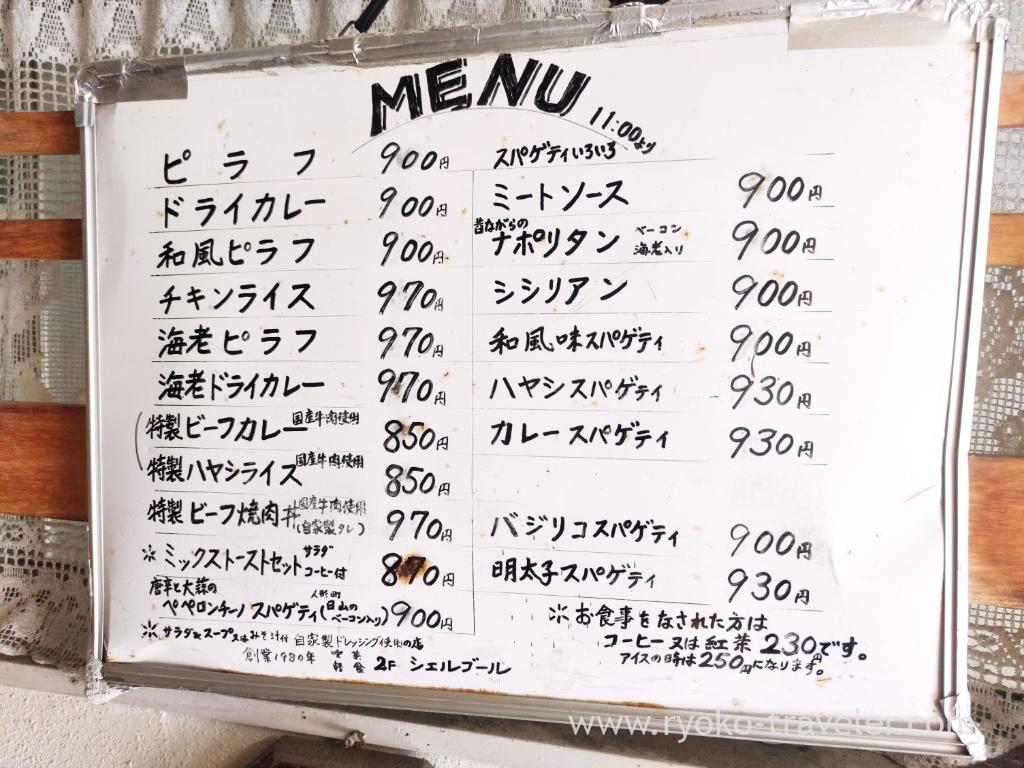 MENU
11:00より
ピラフ 900円
ドライカレー 900円
和風ピラフ 900円
チキンライス 970円
海老ピラフ 970円
海老ドライカレー 970円
特製ビーフカレー 国産牛肉使用 850円
特製ハヤシライス 国産牛肉使用 850円
特製ビーフ焼肉丼 国産牛肉使用 (自家製タレ) 970円
※ミックストーストセット サラダ コーヒー付 870円
唐辛と大蒜の
ペペロンチーノスパゲティ(人形町 日山の ベーコン入り) 900円
※サラダとスープ又はみそ汁付 自家製ドレッシング使用の店
創業1980年 喫茶 軽食 2F シェルブール
スパゲティいろいろ
ミートソース 900円
昔ながらの
ナポリタン ベーコン 海老入り 900円
シシリアン 900円
和風味スパゲティ 900円
ハヤシスパゲティ 930円
カレースパゲティ 930円
バジリコスパゲティ 900円
明太子スパゲティ 930円
※お食事をなされた方は
コーヒー又は紅茶 230円です。
アイスの時は250円になります。
www.ryoko-traveler.com